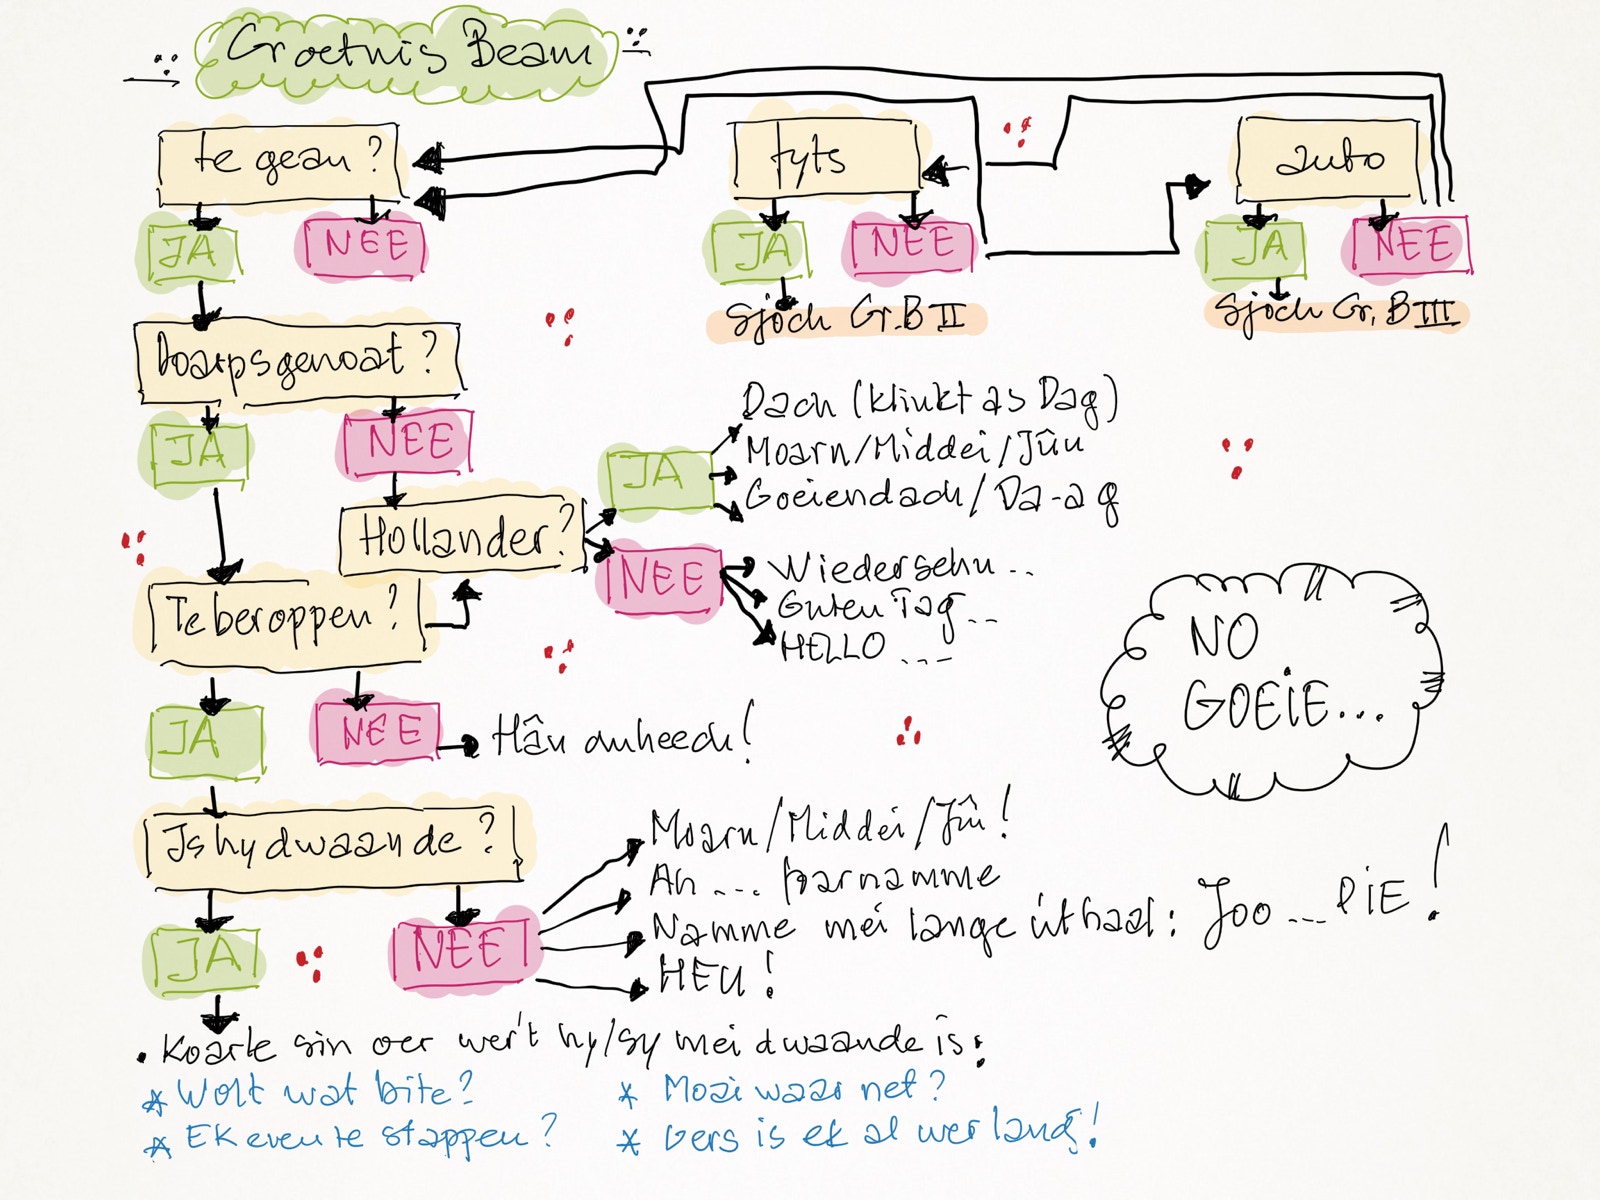 Groetnis Beam
te gean?
fyts
auto
JA
NEE
JA
NEE
JA
NEE
Sjoch Gr.B II
Sjoch Gr. B III
Doarpsgenoat?
JA
NEE
Dach (klinkt as Dag)
JA
Moarn/Middei/Jûn
Goeiendach/Da-ag
Hollander?
NEE
Wiedersehn...
Guten Tag...
HELLO ....
Te beroppen?
NO
GOEIE...
JA
NEE
Hân omheech!
Is hy dwaande?
Moarn/Middei/Jûn!
Ah ... barnamme
Namme mei lange úthaal: Joo....PIE!
HEU!
JA
NEE
. Koarte sin oer wer't hy/sy mei dwaande is:
* Wolt wat bite?
* Moai waar net?
* EK even te stappen?
* Gers is ek al wer lang!